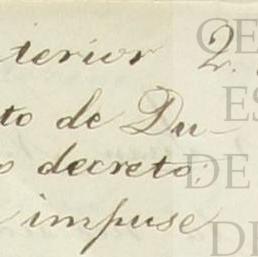 terior 2.
to de Du-
o decreto:
impuse
CE
ES
DE
DE